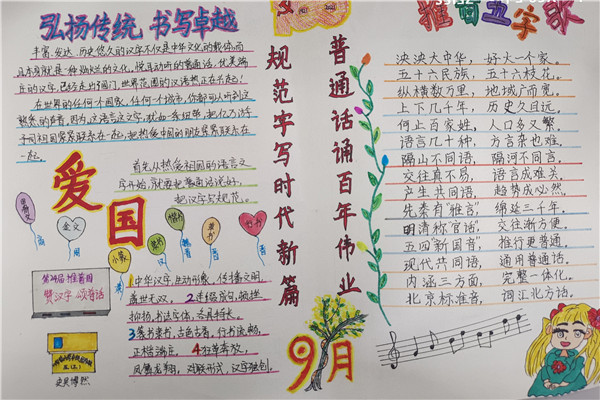 弘扬传统 书写卓越
丰富、发达、历史悠久的汉字不仅是中华文化的载体,而
且本身就是一种灿烂的文化。悦耳动听的普通话,优美端
庄的汉字,已经走出国门,世界范围的汉语热正在升起!
在世界的任何个国家、任何一个城市,你都可以听到这
熟悉的声音,因为,这语言这文字,犹如一条纽带,把亿万语
不同祖国紧紧联系在一起,把热爱中国的朋友紧紧联系在
一起。
爱国
首先从热爱祖国的语言文
字开始,就要把普通话说好,
把汉字写规范。
金文
小篆
隶书
楷书
草书
行书
第24届推普周
赞汉字 颂普话
1中华汉字,生动形象,传播文明,
盖世无双。
抑扬,书法字体,各具特长。
3篆书隶书,古色古香,行书流畅,
正楷端庄。
凤舞龙翔,对联形式,汉字独创。
规范字写时代新篇
普通话诵百年伟业
9月
推普五字歌
泱泱大中华,好大一个家。
五十六民族,五十六枝花。
纵横数万里,地域广而宽。
上下几千年,历史久且远。
何止百家姓,人口多又繁。
语言几十种,方言杂也难。
隔山不同语,隔河不同言。
交往真不易,语言成难关。
产生共同语,趋势成必然。
先秦有"雅言",绵延三千年。
明清称官话",交往渐方便。
五四"新国音",推行更普通。
现代共同语,通用普通话。
内涵三方面,完整一体化。
北京标准音,词汇北方话。